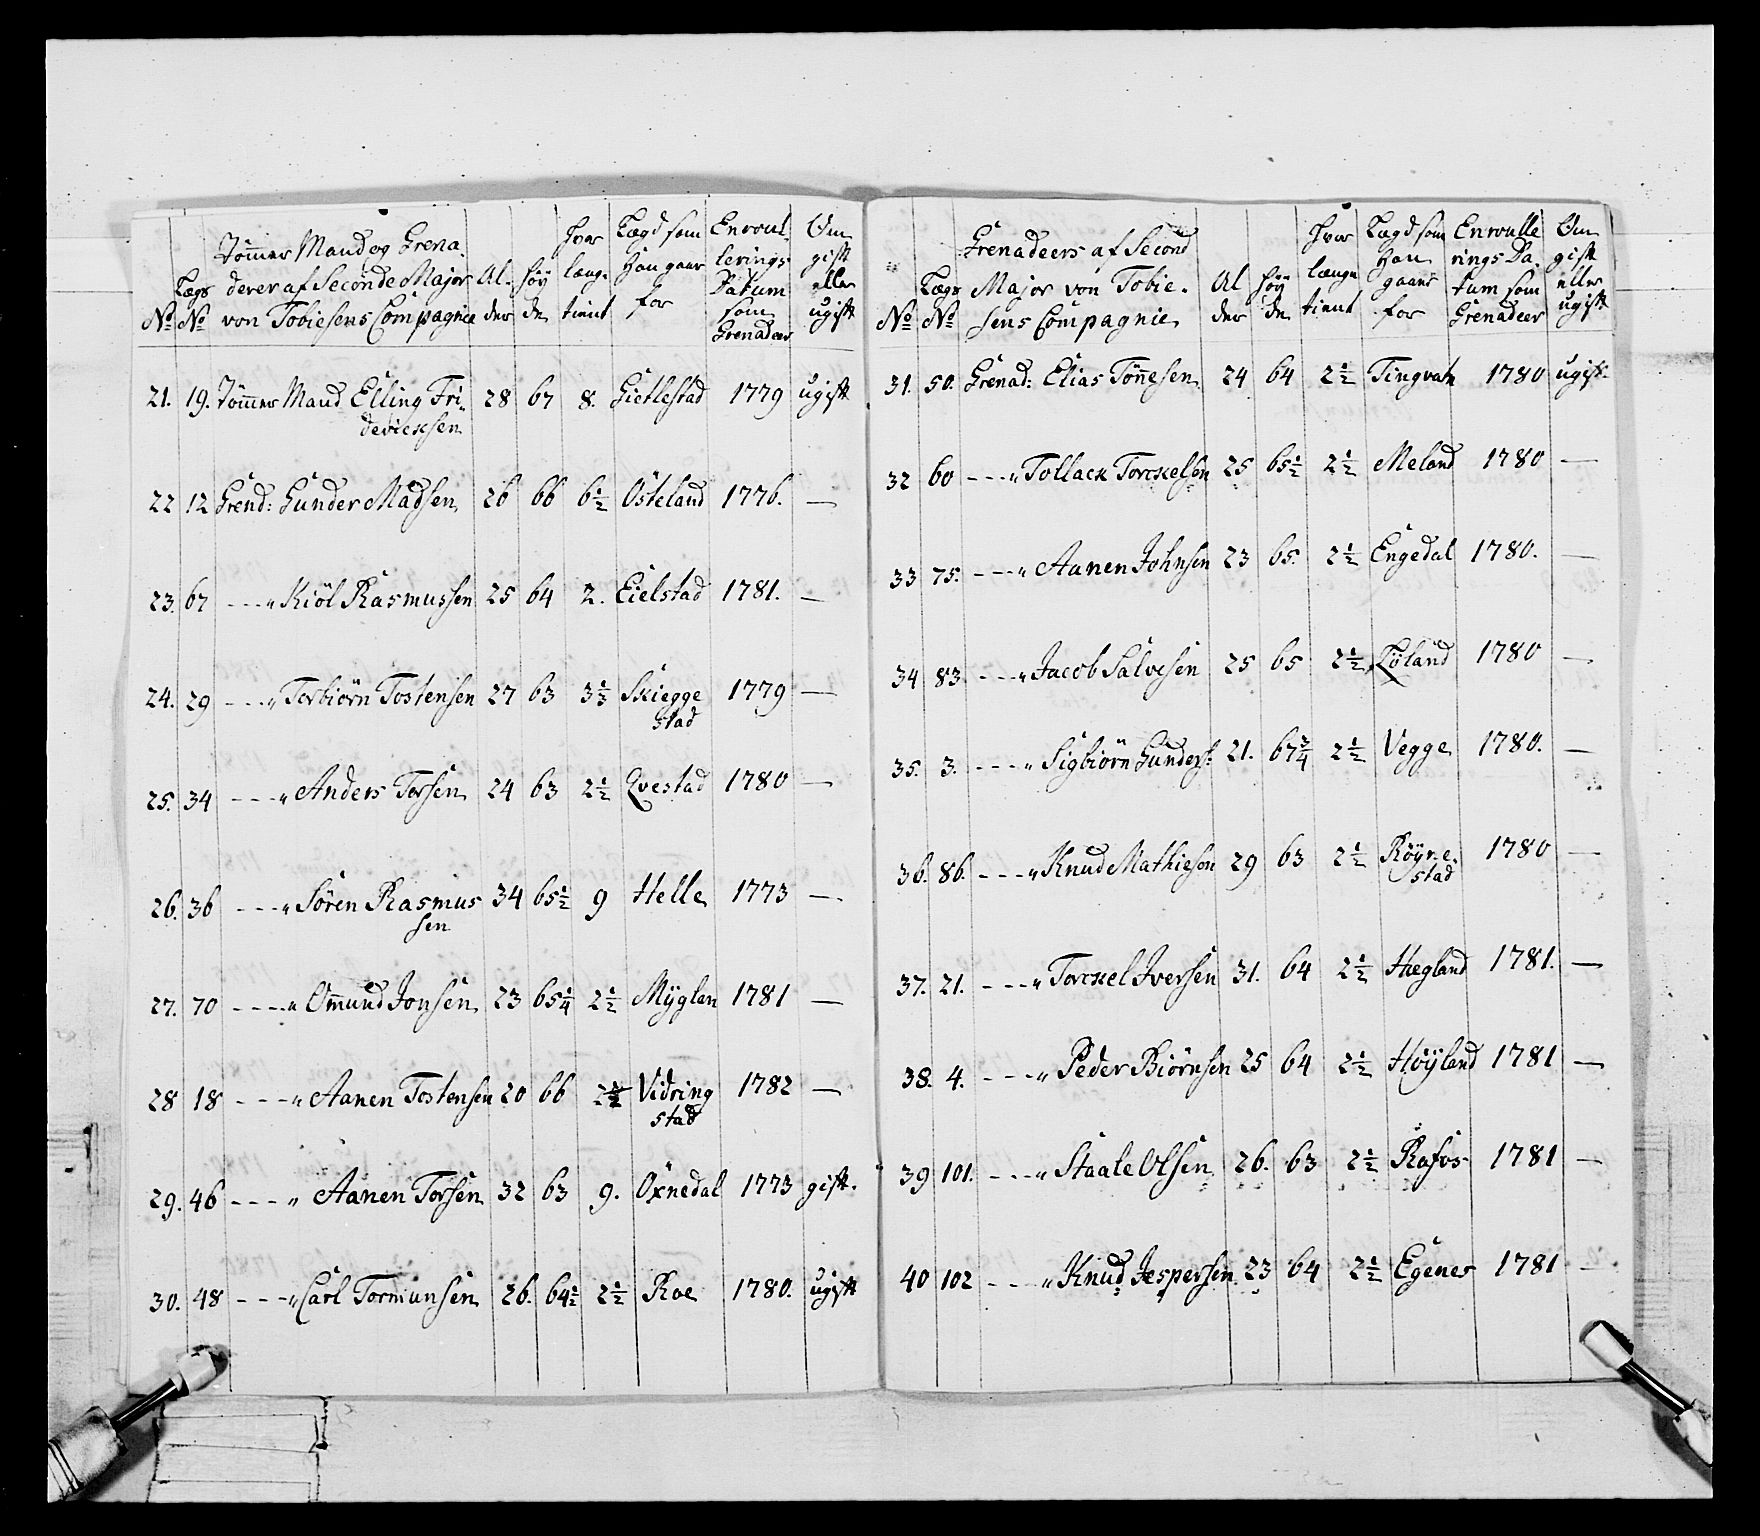 No Lægs No Tömmer Mand og Grenaderer af Seconde Major von Tobiesens Compagnie Alder höyde hvor længe tient Lægd som Han gaar for Enroulerings Datum som Grenadeer Om gift eller ugift
21. 19. Tömmer Mand Elling Fridericksen 28 67 8. Gietlestad 1779 ugift
22 12 Grend: Gunder Madsen 26 66 6½ Östeland 1776. —
23. 67 ---„ Kiöl Rasmussen 25 64 2. Eielstad 1781. —
24. 29 ---„ Torbiörn Tostensen 27 63 3½ Skieggestad 1779 —
25. 34 ---„ Anders Torsen 24 63 2½ Qvestad 1780 —
26. 36 ---„ Sören Rasmussen 34 65½ 9 Helle 1773 —.
27. 70 ---„ Omund Jonsen 23 65¼ 2½ Myglan 1781 —
28 18 ---„ Aanen Tostensen 20 66 Vidringstad 1782 —
29. 46 ---„ Aanen Torsen 32 63 9. Oxnedal 1773 gift.
30. 48 ---„ Carl Tormunsen 26. 64½ 2½ Roe 1780. ugift
No Lægs No Grenadeers af Second Major von Tobiesens Compagnie Alder höyde hvor længe tient Lægd som Han gaaer for Enroullerings Datum som Grenadeer Om gift eller ugift
31. 50. Grenad: Elias Tönesen 24 64 2½ Tingvatn 1780 ugift.
32 60 ---„ Tollack Torckelsen 25 65½ 2½ Meland 1780 —
33 75. ---„ Aanen Johnsen 23 65. 2½ Engedal 1780. —
34 83 ---„ Jacob Salvesen 25 65 2½ Löland 1780 —
35. 3. ---„ Sigbiörn Gunders: 21. 67¾ 2½ Vegge 1780. —
36. 86. ---„ Knud Mathiesen 29 63 2½ Röyrestad 1780 —
37. 21. ---„ Torckel Iversen 31. 64 2½ Hægland 1781. —
38. 4. ---„ Peder Biörnsen 25 64 2½ Höyland 1781 —
39 101. ---„ Staale Olsen 26. 63 2½ Rafos 1781 —
40 102 ---„ Knud Jespersen 23 64 2½ Egenes 1781 —